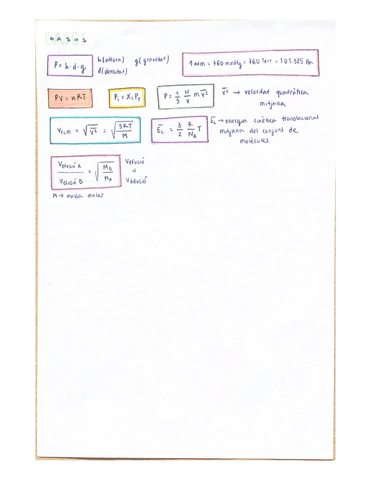 GASOS
P = h·d·g h(altura) g(gravetat) d(densitat)
1 atm = 760 mmHg = 760 torr = 101.325 Pa
PV = nRT
Pi = Xi PT
P = 1/3 N/V m v̄²
v̄² → velocitat quadràtica mitjana
vrcm = √v̄² = √(3RT/M)
Ēc = 3/2 R/NA T
Ēc → energia cinètica translacional mitjana del conjunt de molècules.
Vefusió A / Vefusió B = √(MB/MA)
Vefusió
Vdifusió
M → massa molar